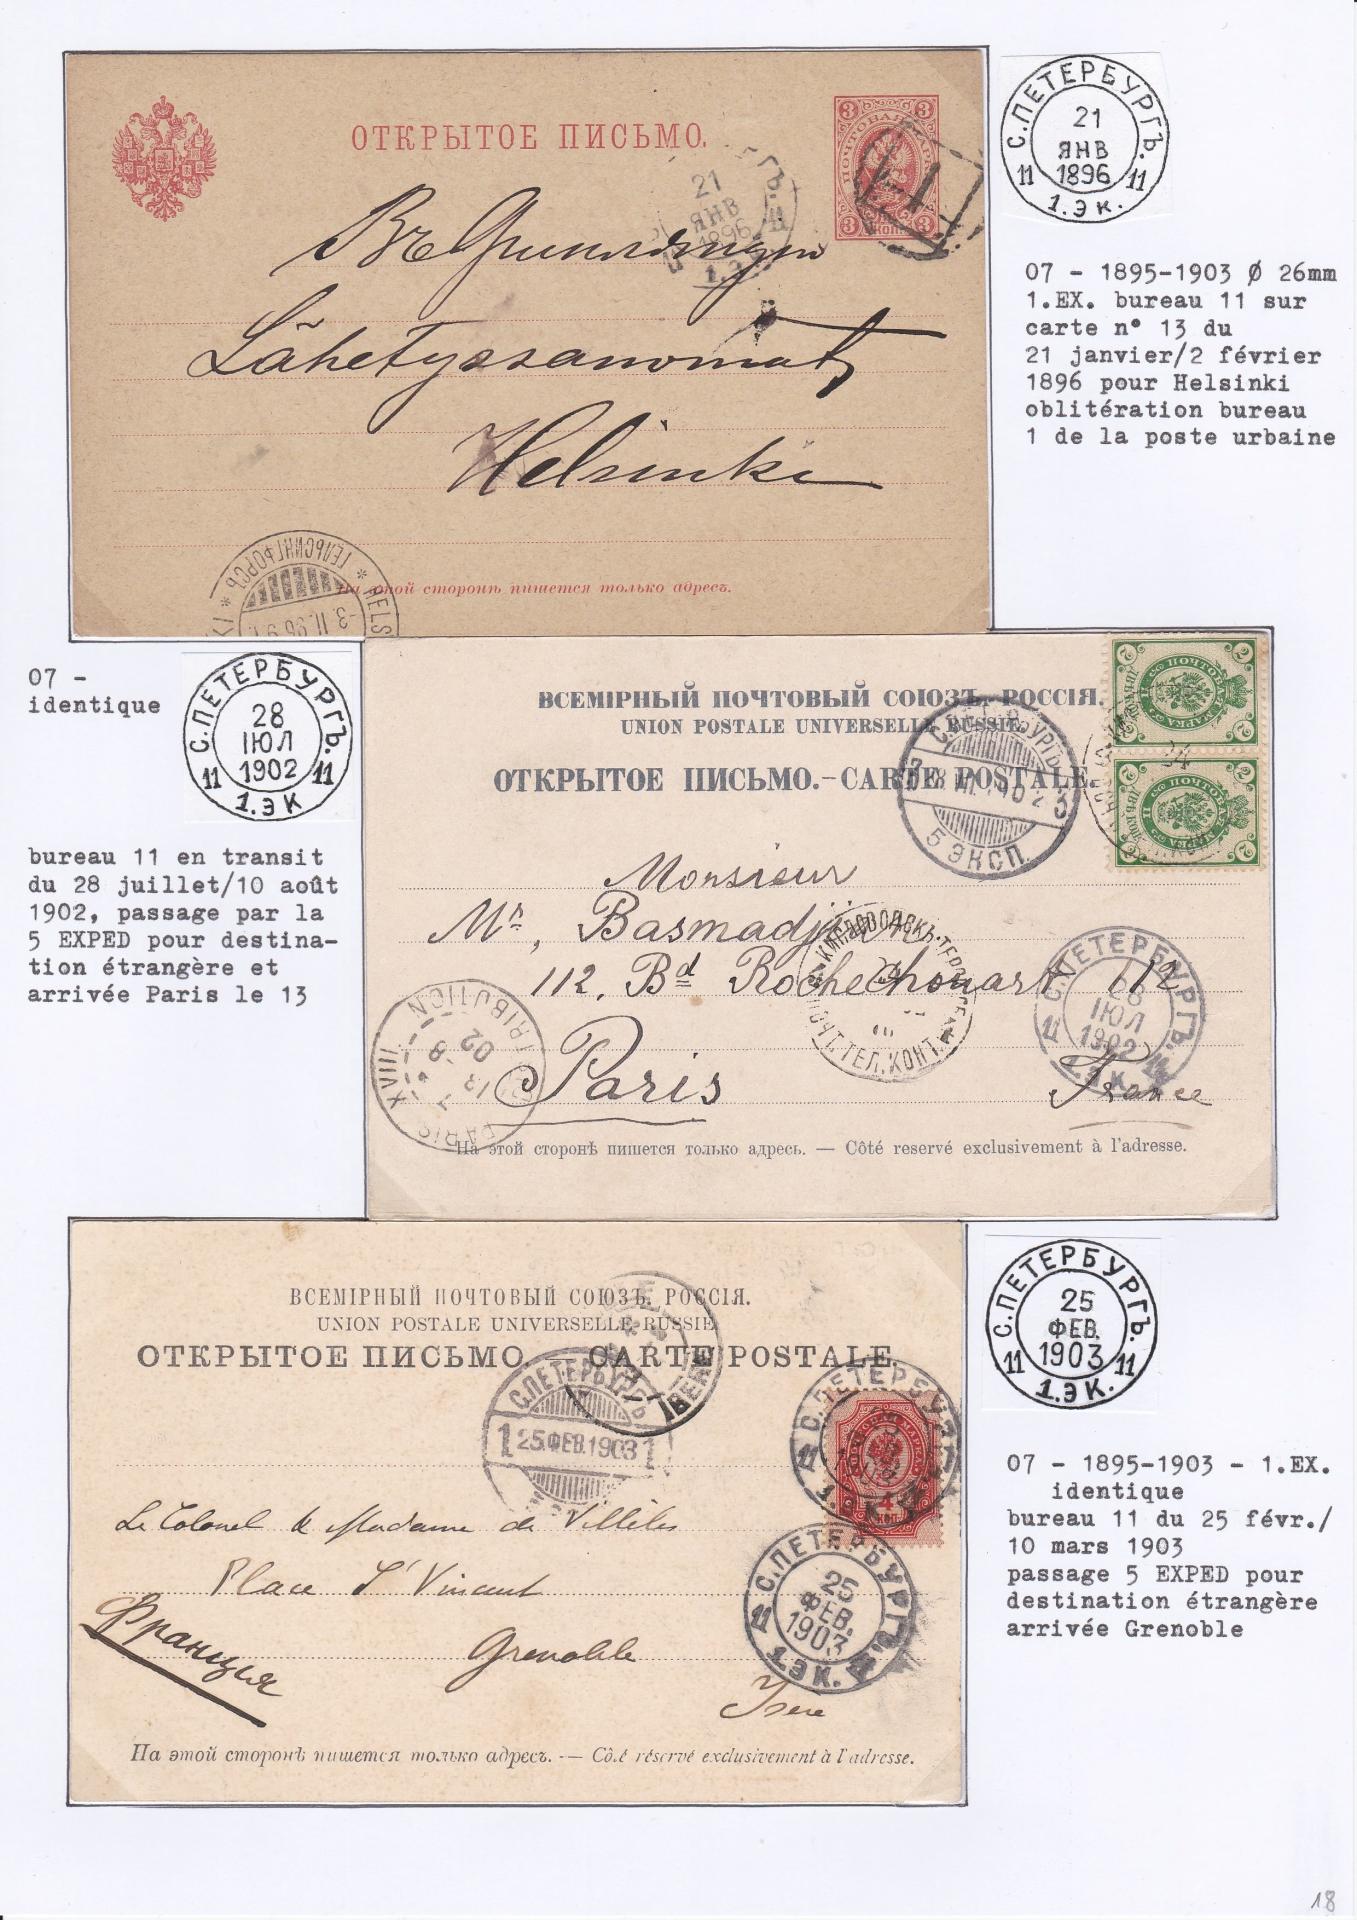 ОТКРЫТОЕ ПИСЬМО.
3
3
3
3
21
ЯНВ
1896
Въ Финляндію
Lähetyssanomat
Helsinki
ГЕЛЬСИНГФОРСЪ
На этой сторонѣ пишется только адресъ.
С.ПЕТЕРБУРГЪ.
21
ЯНВ
1896
11 11
1.ЭК.
07 - 1895-1903 Ø 26mm
1.EX. bureau 11 sur
carte n° 13 du
21 janvier/2 février
1896 pour Helsinki
oblitération bureau
1 de la poste urbaine
07 -
identique
С.ПЕТЕРБУРГЪ.
28
ІЮЛ
1902
11 11
1.ЭК
bureau 11 en transit
du 28 juillet/10 août
1902, passage par la
5 EXPED pour destina-
tion étrangère et
arrivée Paris le 13
ВСЕМІРНЫЙ ПОЧТОВЫЙ СОЮЗЪ. РОССІЯ.
UNION POSTALE UNIVERSELLE RUSSIE
ОТКРЫТОЕ ПИСЬМО.-CARTE POSTALE.
С.ПЕТЕРБУРГЪ
5 ЭКСП.
Monsieur
Mr, Basmadjian
112, Bd Rochechouart 112
Paris
France
ПОЧТ.ТЕЛ.КОНТ.
С.ПЕТЕРБУРГЪ.
28
ІЮЛ
1902
1.ЭК.
PARIS XVIII DISTRIBUTION
13 -8
02
На этой сторонѣ пишется только адресъ. — Côté reservé exclusivement à l'adresse.
ВСЕМІРНЫЙ ПОЧТОВЫЙ СОЮЗЪ. РОССІЯ.
UNION POSTALE UNIVERSELLE RUSSIE
ОТКРЫТОЕ ПИСЬМО. CARTE POSTALE.
С.ПЕТЕРБУРГЪ
1 25.ФЕВ.1903 1
ISERE
С.ПЕТЕРБУРГЪ
С.ПЕТЕРБУРГЪ.
25
ФЕВ.
1903
11
1.ЭК.
Le Colonel & Madame de Villèles
Place St Vincent
Grenoble
Isère
Франція
На этой сторонѣ пишется только адресъ. — Côté réservé exclusivement à l'adresse.
С.ПЕТЕРБУРГЪ.
25
ФЕВ.
1903
11 11
1.ЭК.
07 - 1895-1903 - 1.EX.
identique
bureau 11 du 25 févr./
10 mars 1903
passage 5 EXPED pour
destination étrangère
arrivée Grenoble
18